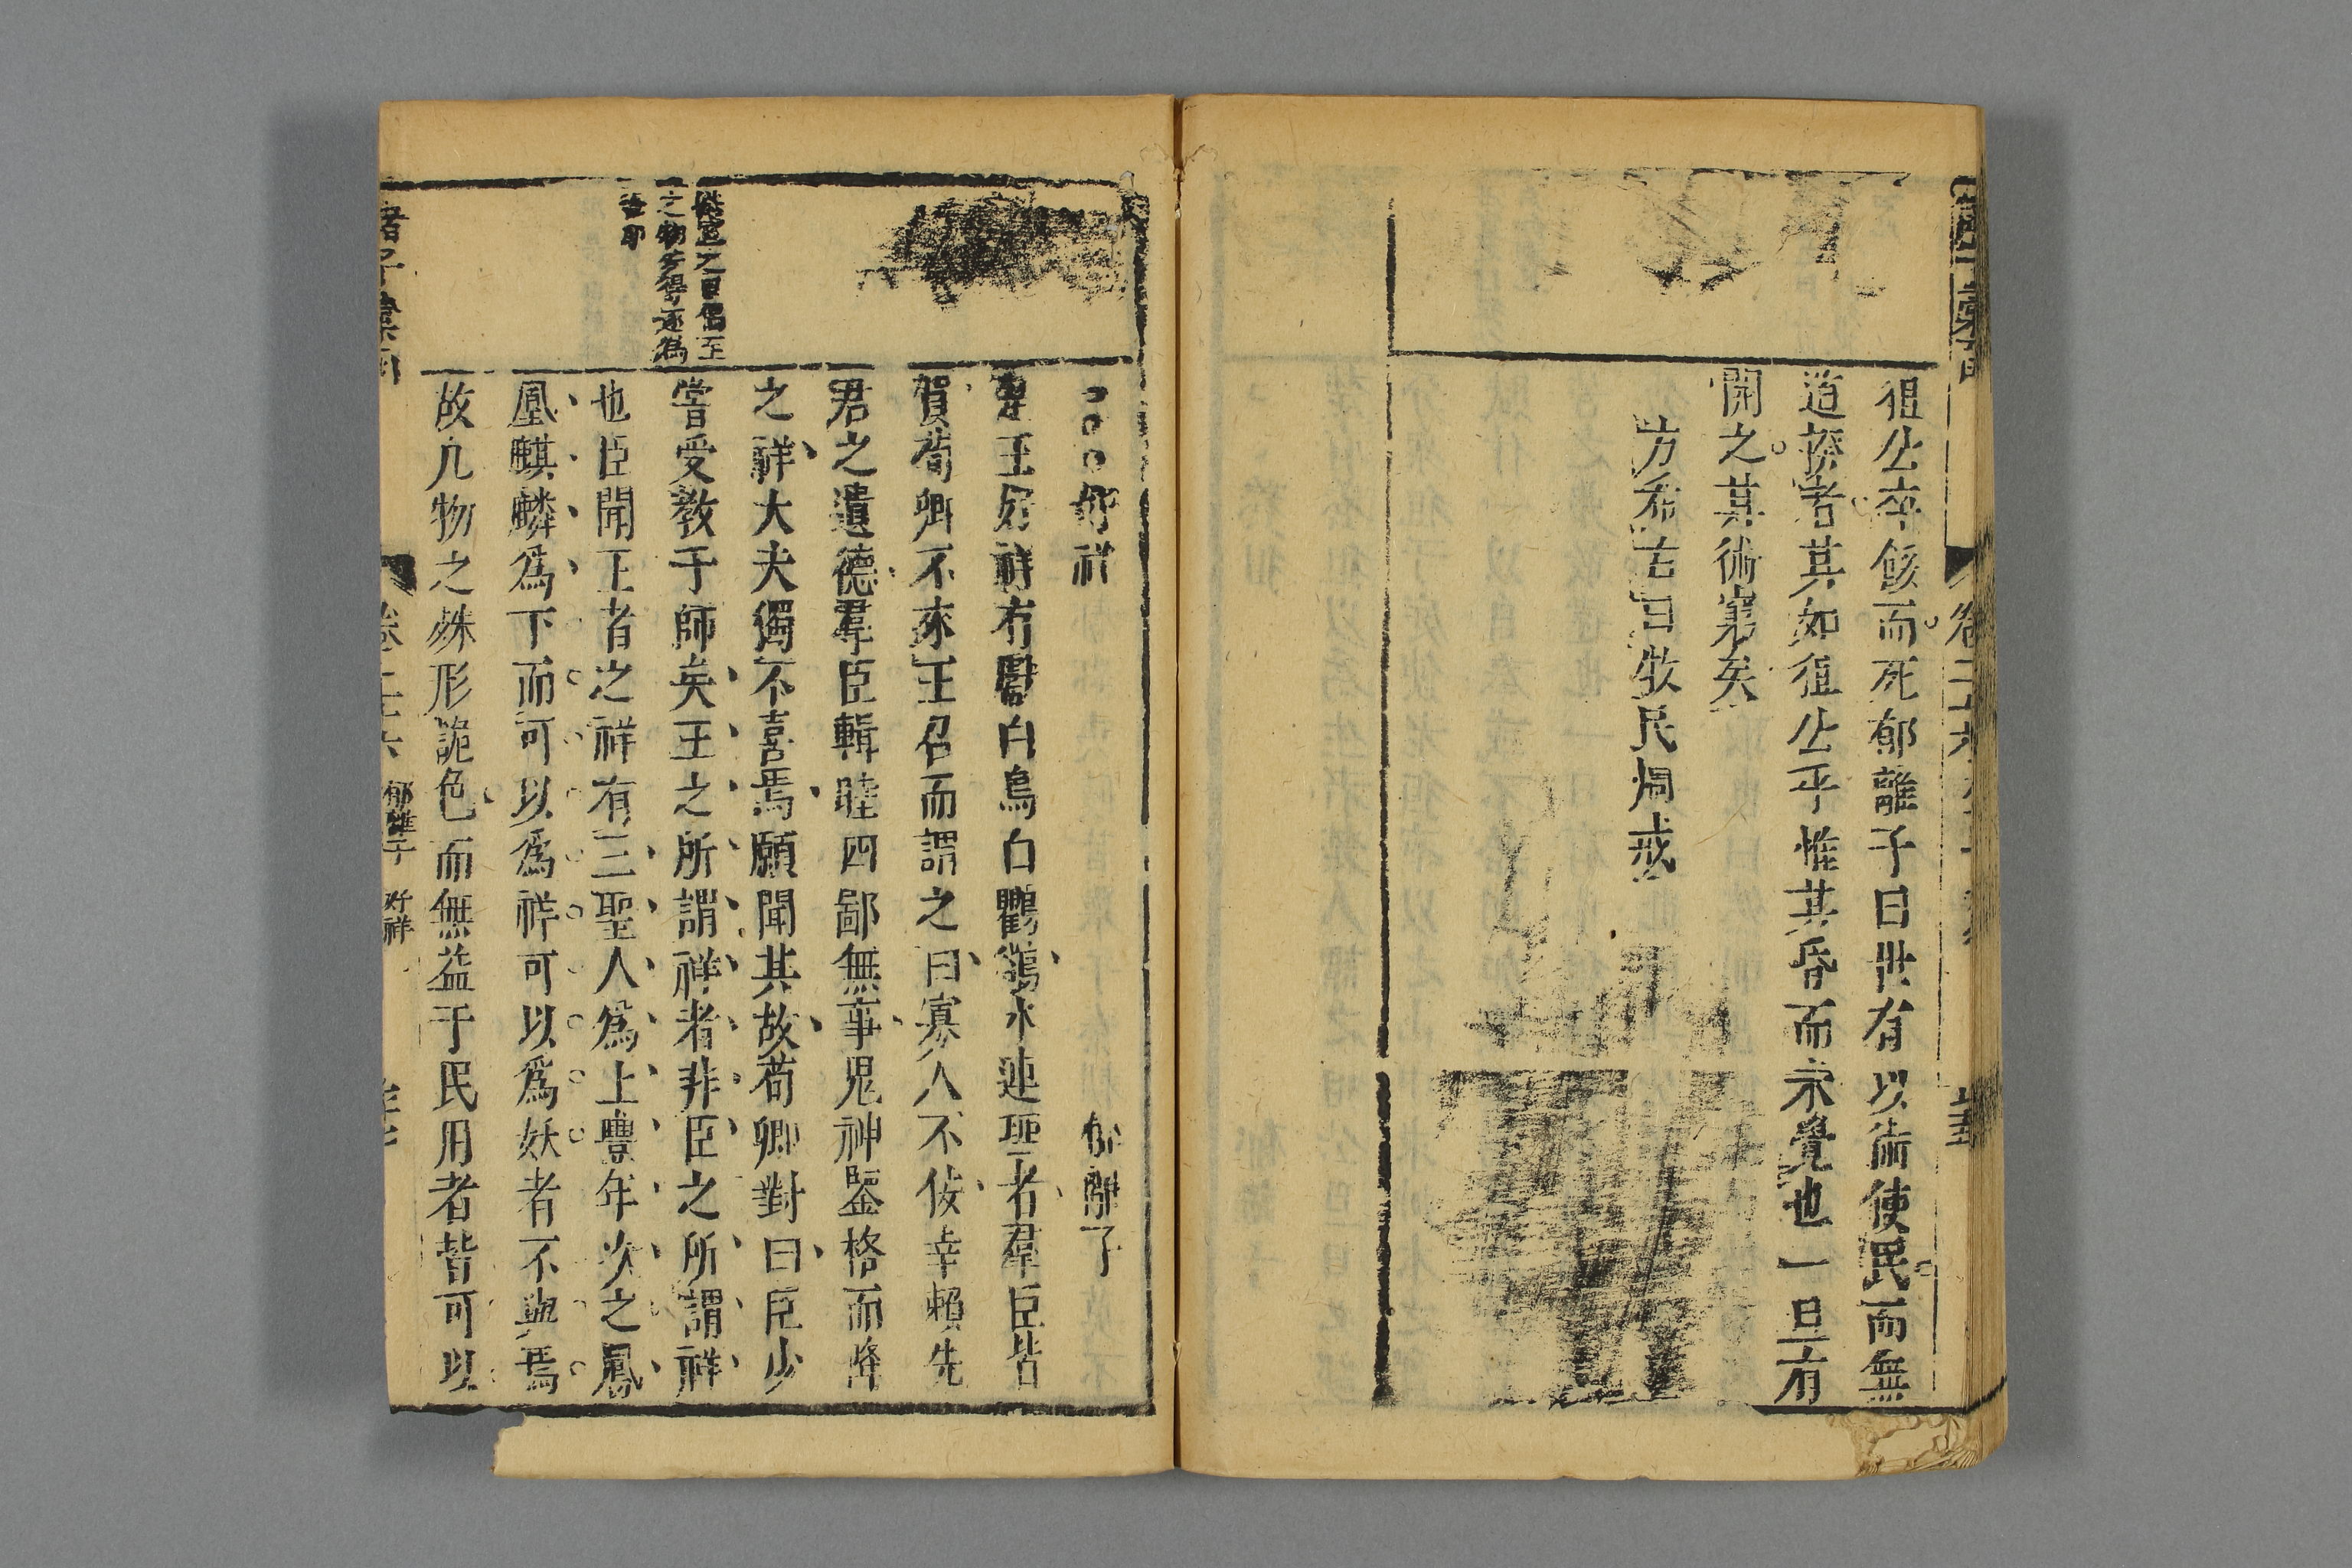 狙公卒餒而死郁離子曰世有以術使民而無
道揆者其如狙公乎惟其昏而未覺也一旦有
開之其術窮矣
方希古曰牧民炯戒
好祥
郁離子
王好祥有獻白烏白鸜鵒木連理者羣臣皆
賀荀卿不來王召而謂之曰寡人不佞幸賴先
君之遺德羣臣輯睦四鄙無事鬼神鑒格而降
之祥大夫獨不喜焉願聞其故荀卿對曰臣少
嘗受教于師矣王之所謂祥者非臣之所謂祥
也臣聞王者之祥有三聖人爲上豐年次之鳳
凰麒麟爲下而可以爲祥可以爲妖者不與焉
故凡物之殊形詭色而無益于民用者皆可以
之物安得逐爲
諸子彙函
郁離子 好祥